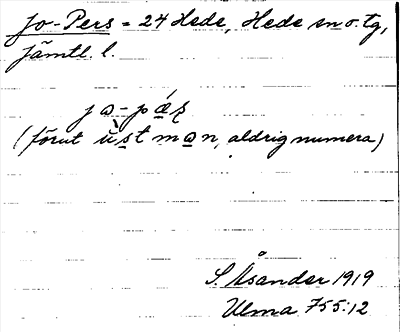 Jo-Pers = 24 Hede, Hede sn o. tg,
Jämtl. l.
ja-pæ̀ʂ
(förut ùstman, aldrig numera)
S. Åsander 1919
Ulma 755:12